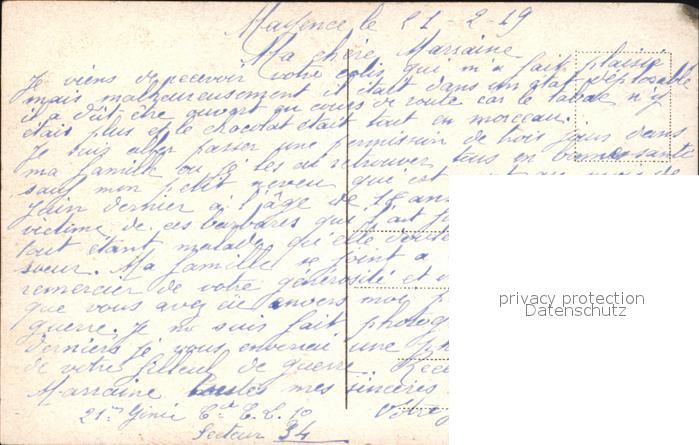 Mayence le 21-2-19
Ma chère Marraine
Je viens de recevoir votre colis qui m'a fait plaisir
mais malheureusement il était dans un état déplorable
il a dût être ouvert au cours de route car le tabac n'y
étais plus et le chocolat était tout en morceau.
Je suis aller passer une permission de trois jours dans
ma famille ou je les ai retrouver tous en bonne santé
sauf mon petit neveu qui est
juin dernier a l'âge de 18 ans
victime de ces barbares qui l'ait
tout étant malade qu'elle
soeur. Ma famille se joint a
remercier de votre générosité et
que vous avez eue envers moi
guerre. Je me suis fait photog
derniers je vous enverrai une
de votre filleul de guerre. Rece
Marraine toutes mes sincères
21me Génie Cie E. C. 10 Votre
Secteur 34
privacy protection
Datenschutz